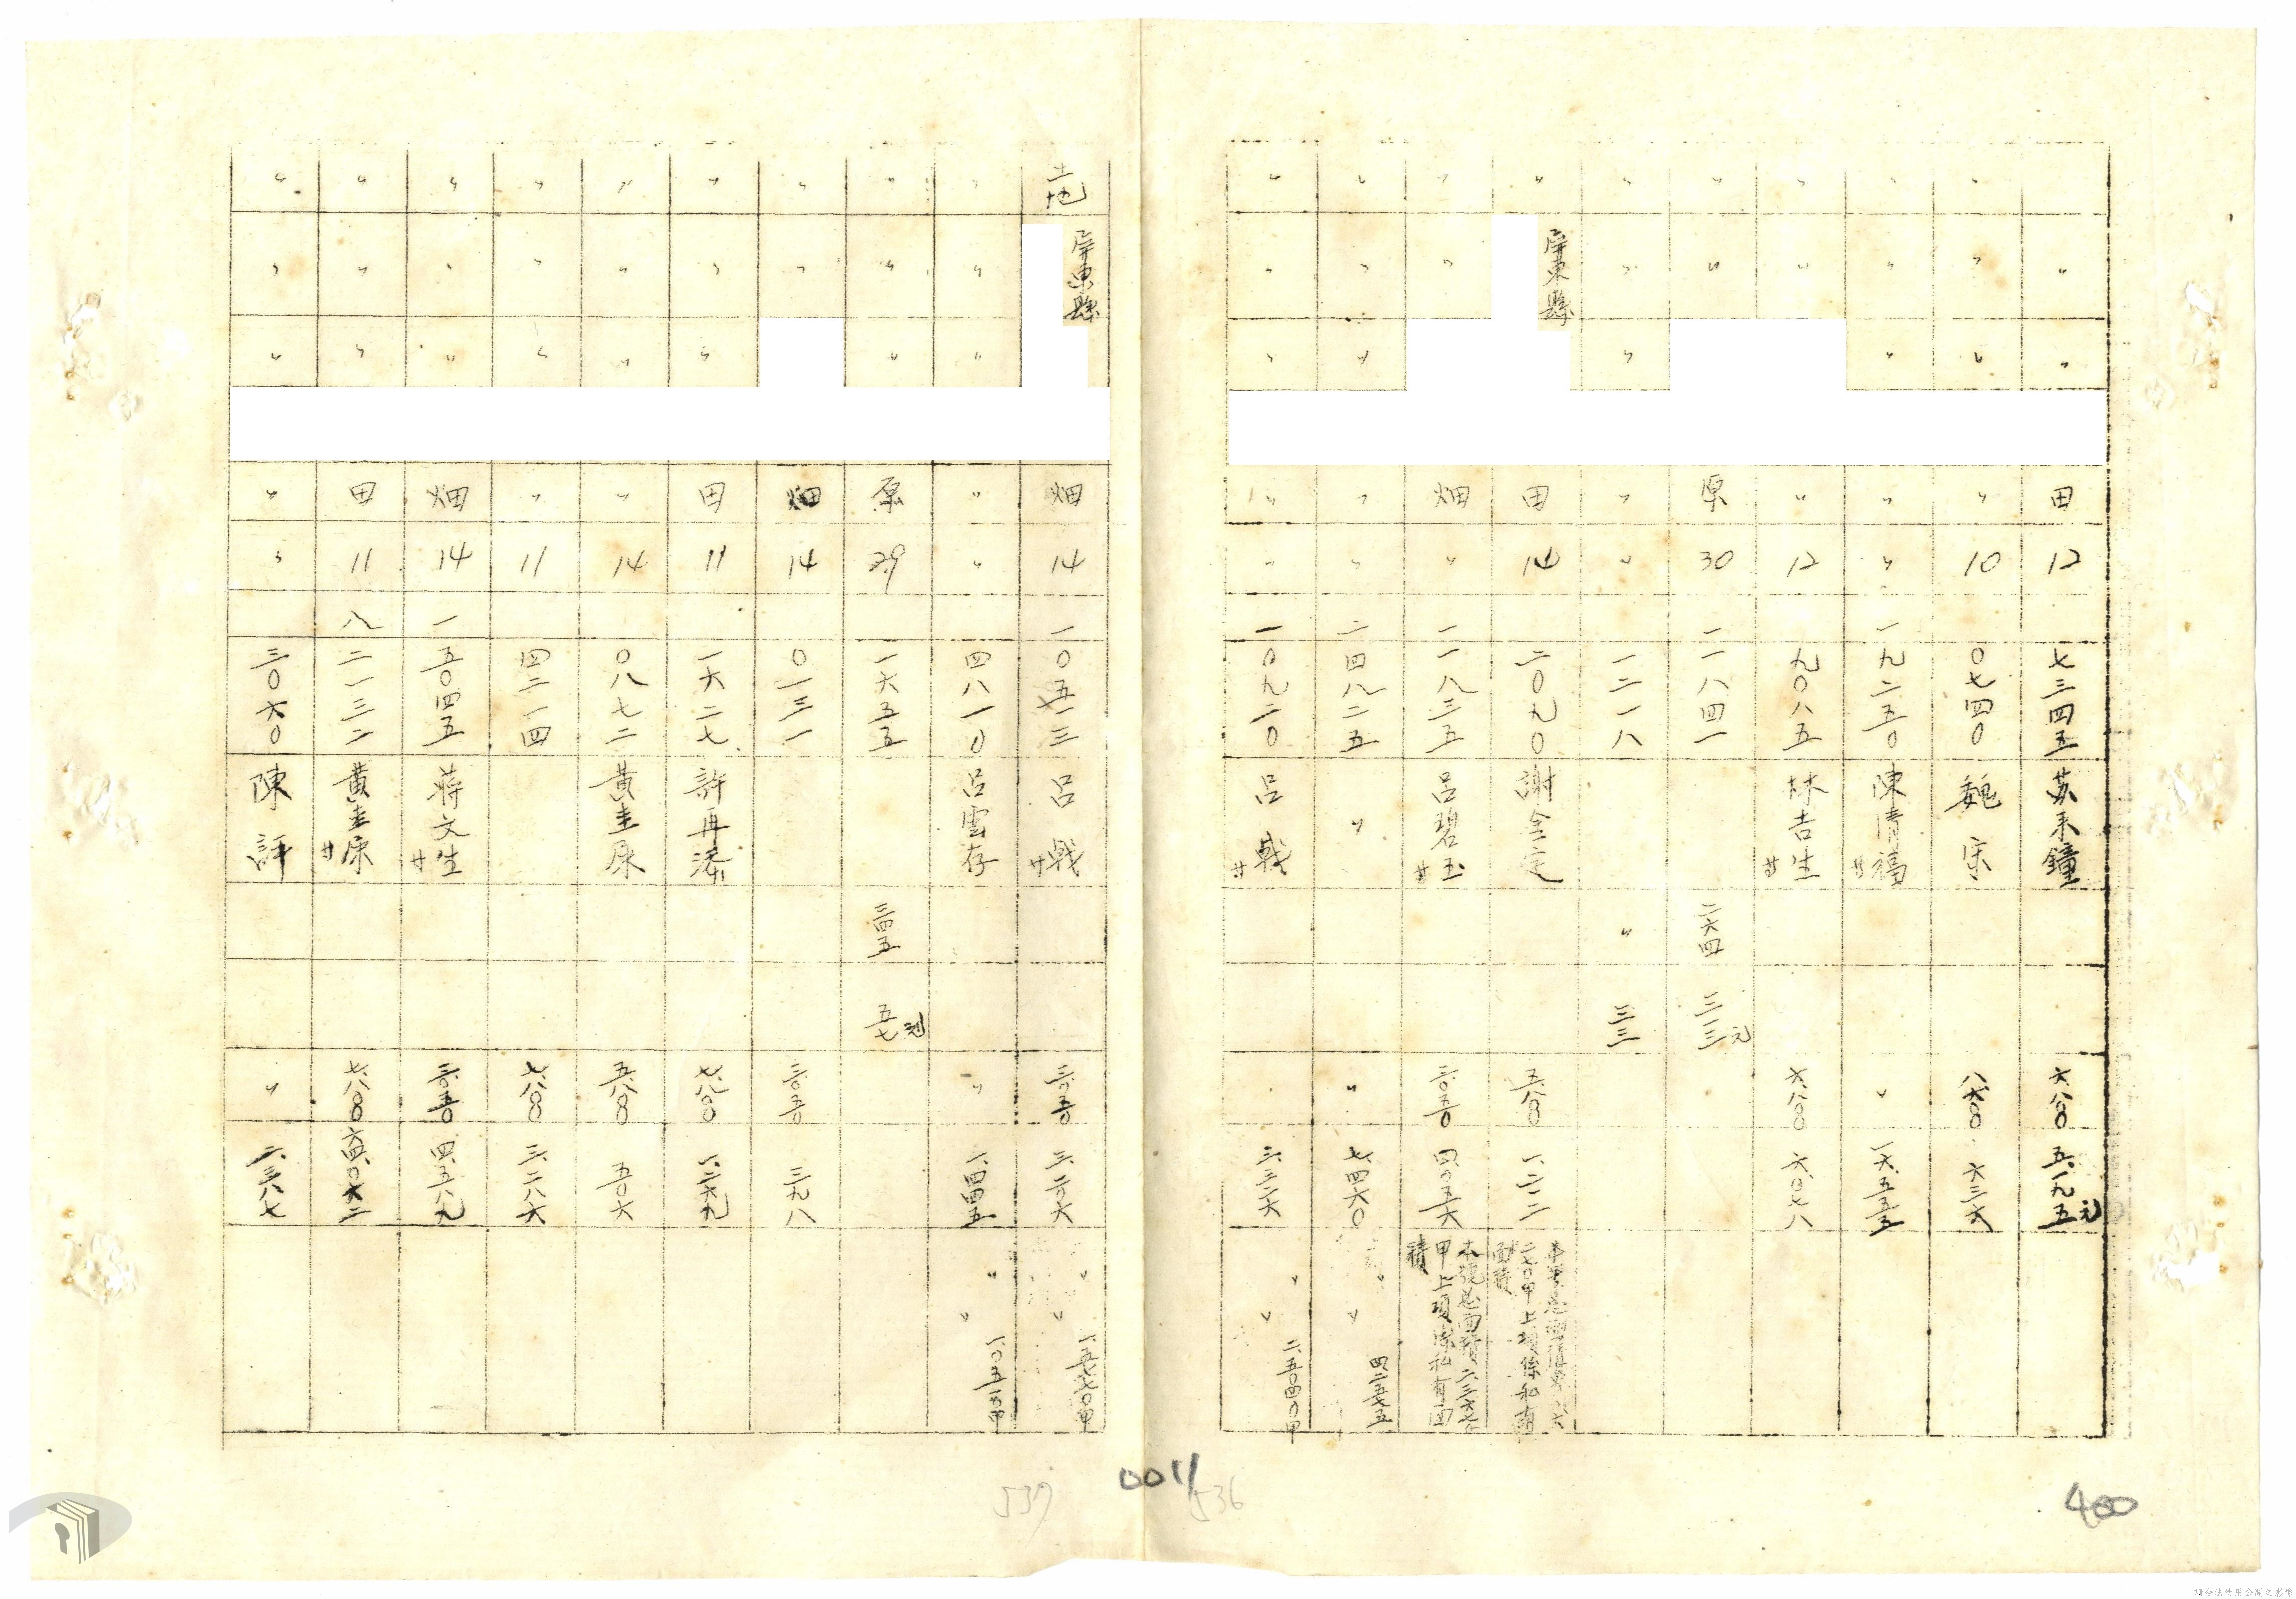 〃 田 12 七三四五 苏来鐘 六.八〇 五.一九五元
〃 〃 〃 〃 10 〇七四〇 魏宗 八.六〇 六三六
〃 〃 〃 〃 〃 一九二五〇 陳清福 〃 一六.五五五
〃 〃 〃 12 九〇八五 林吉生 六.八〇 六.〇七八
〃 〃 原 30 一一八四一 二六四 三一三元
〃 〃 〃 〃 〃 一二一八 〃 三三
〃 屏東縣 田 14 二〇九〇 謝 五.八〇 一.二一二
〃 〃 畑 〃 一一八三五 呂碧玉 三.〇五〇 四.〇五六 本號总面積二.三六七 甲上項係私有面積
〃 〃 〃 〃 〃 二四八二五 〃 〃 七.四六〇 〃 〃 四.二五七五
〃 〃 〃 〃 〃 一〇九二〇 呂戟 三.三二六 〃 〃 二.五〇四〇甲
土地 屏東縣 畑 14 一〇五一三 呂戟 三.〇五〇 三.二〇六 〃 〃 一.五七七〇甲
〃 〃 〃 〃 〃 四八一〇 呂雲存 〃 一.四四五 〃
〃 〃 〃 原 29 一六五五 三四五 五七元
〃 〃 畑 14 〇一三一 三.〇五〇 三九八
〃 〃 〃 田 11 一六二七 許再添 七.八〇 一.二六九
〃 〃 〃 〃 14 〇八七二 黃圭原 五.八〇 五〇六
〃 〃 〃 〃 11 四二一四 七.八〇 三.二八六
〃 〃 〃 畑 14 一五〇四五 蔣文生 三.〇五〇 四.五八九
〃 〃 〃 田 11 八二一三二 黃圭原 七.八〇 六四.〇六二
〃 〃 〃 〃 〃 三〇六〇 陳評 〃 二.三八七
537
0011
536
400
請合法使用公開之影像